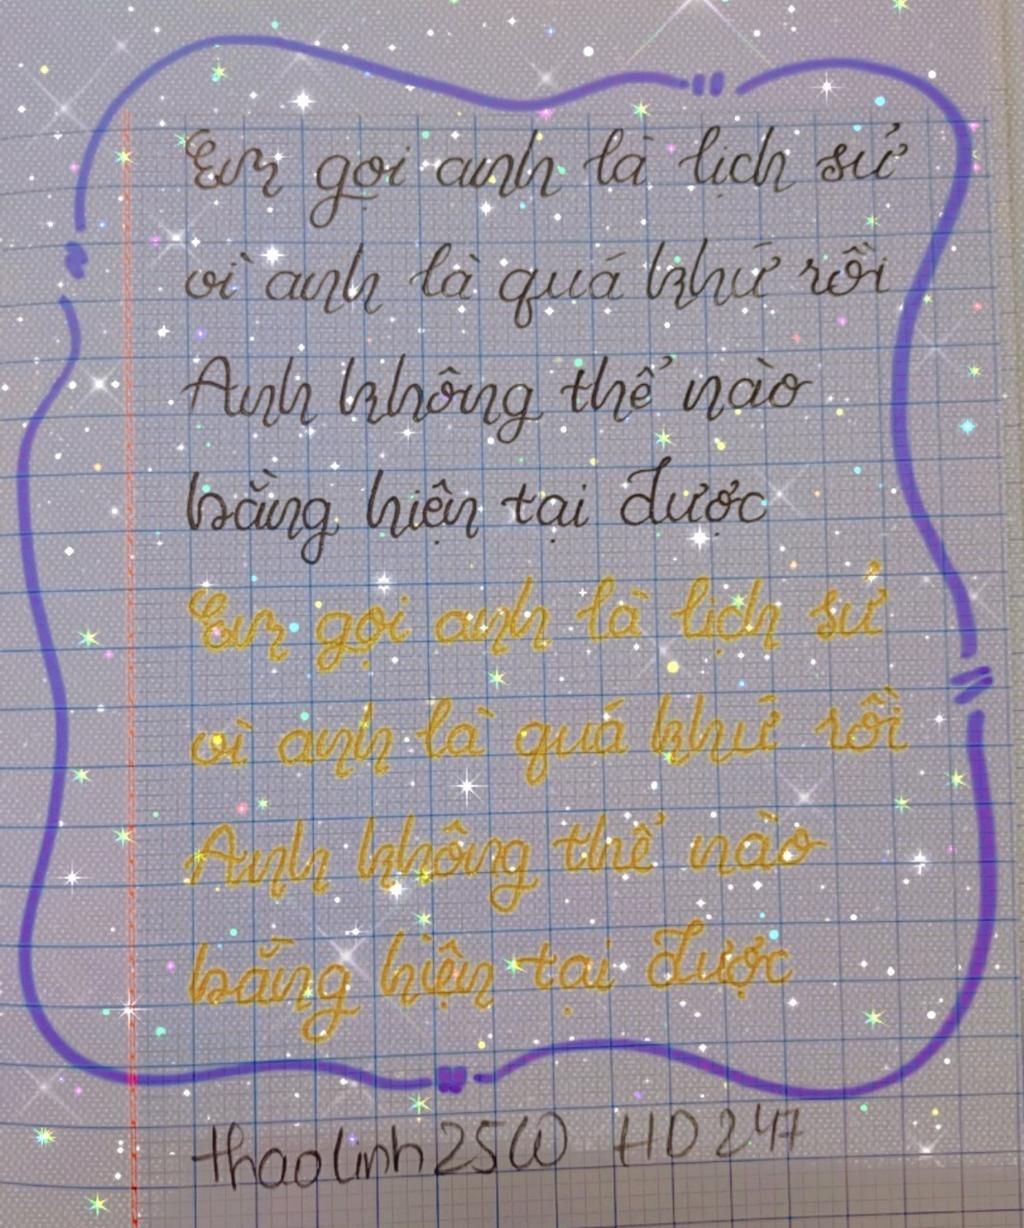 Em gọi anh là lịch sử
vì anh là quá khứ rồi
Anh không thể nào
bằng hiện tại được
Em gọi anh là lịch sử
vì anh là quá khứ rồi
Anh không thể nào
bằng hiện tại được
thaolinh25W HD247